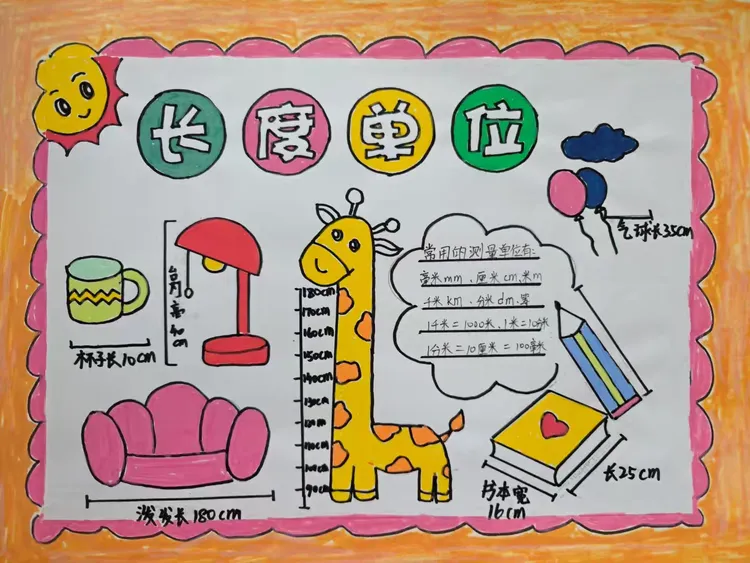 长度单位
气球长35cm
常用的测量单位有:
毫米mm、厘米cm、米m
千米km、分米dm、等
1千米=1000米、1米=10分米
1分米=10厘米=100毫米
台灯高40cm
杯子长10cm
180cm
170cm
160cm
150cm
140cm
130cm
120cm
110cm
100cm
90cm
长25cm
书本宽
16cm
沙发长180cm